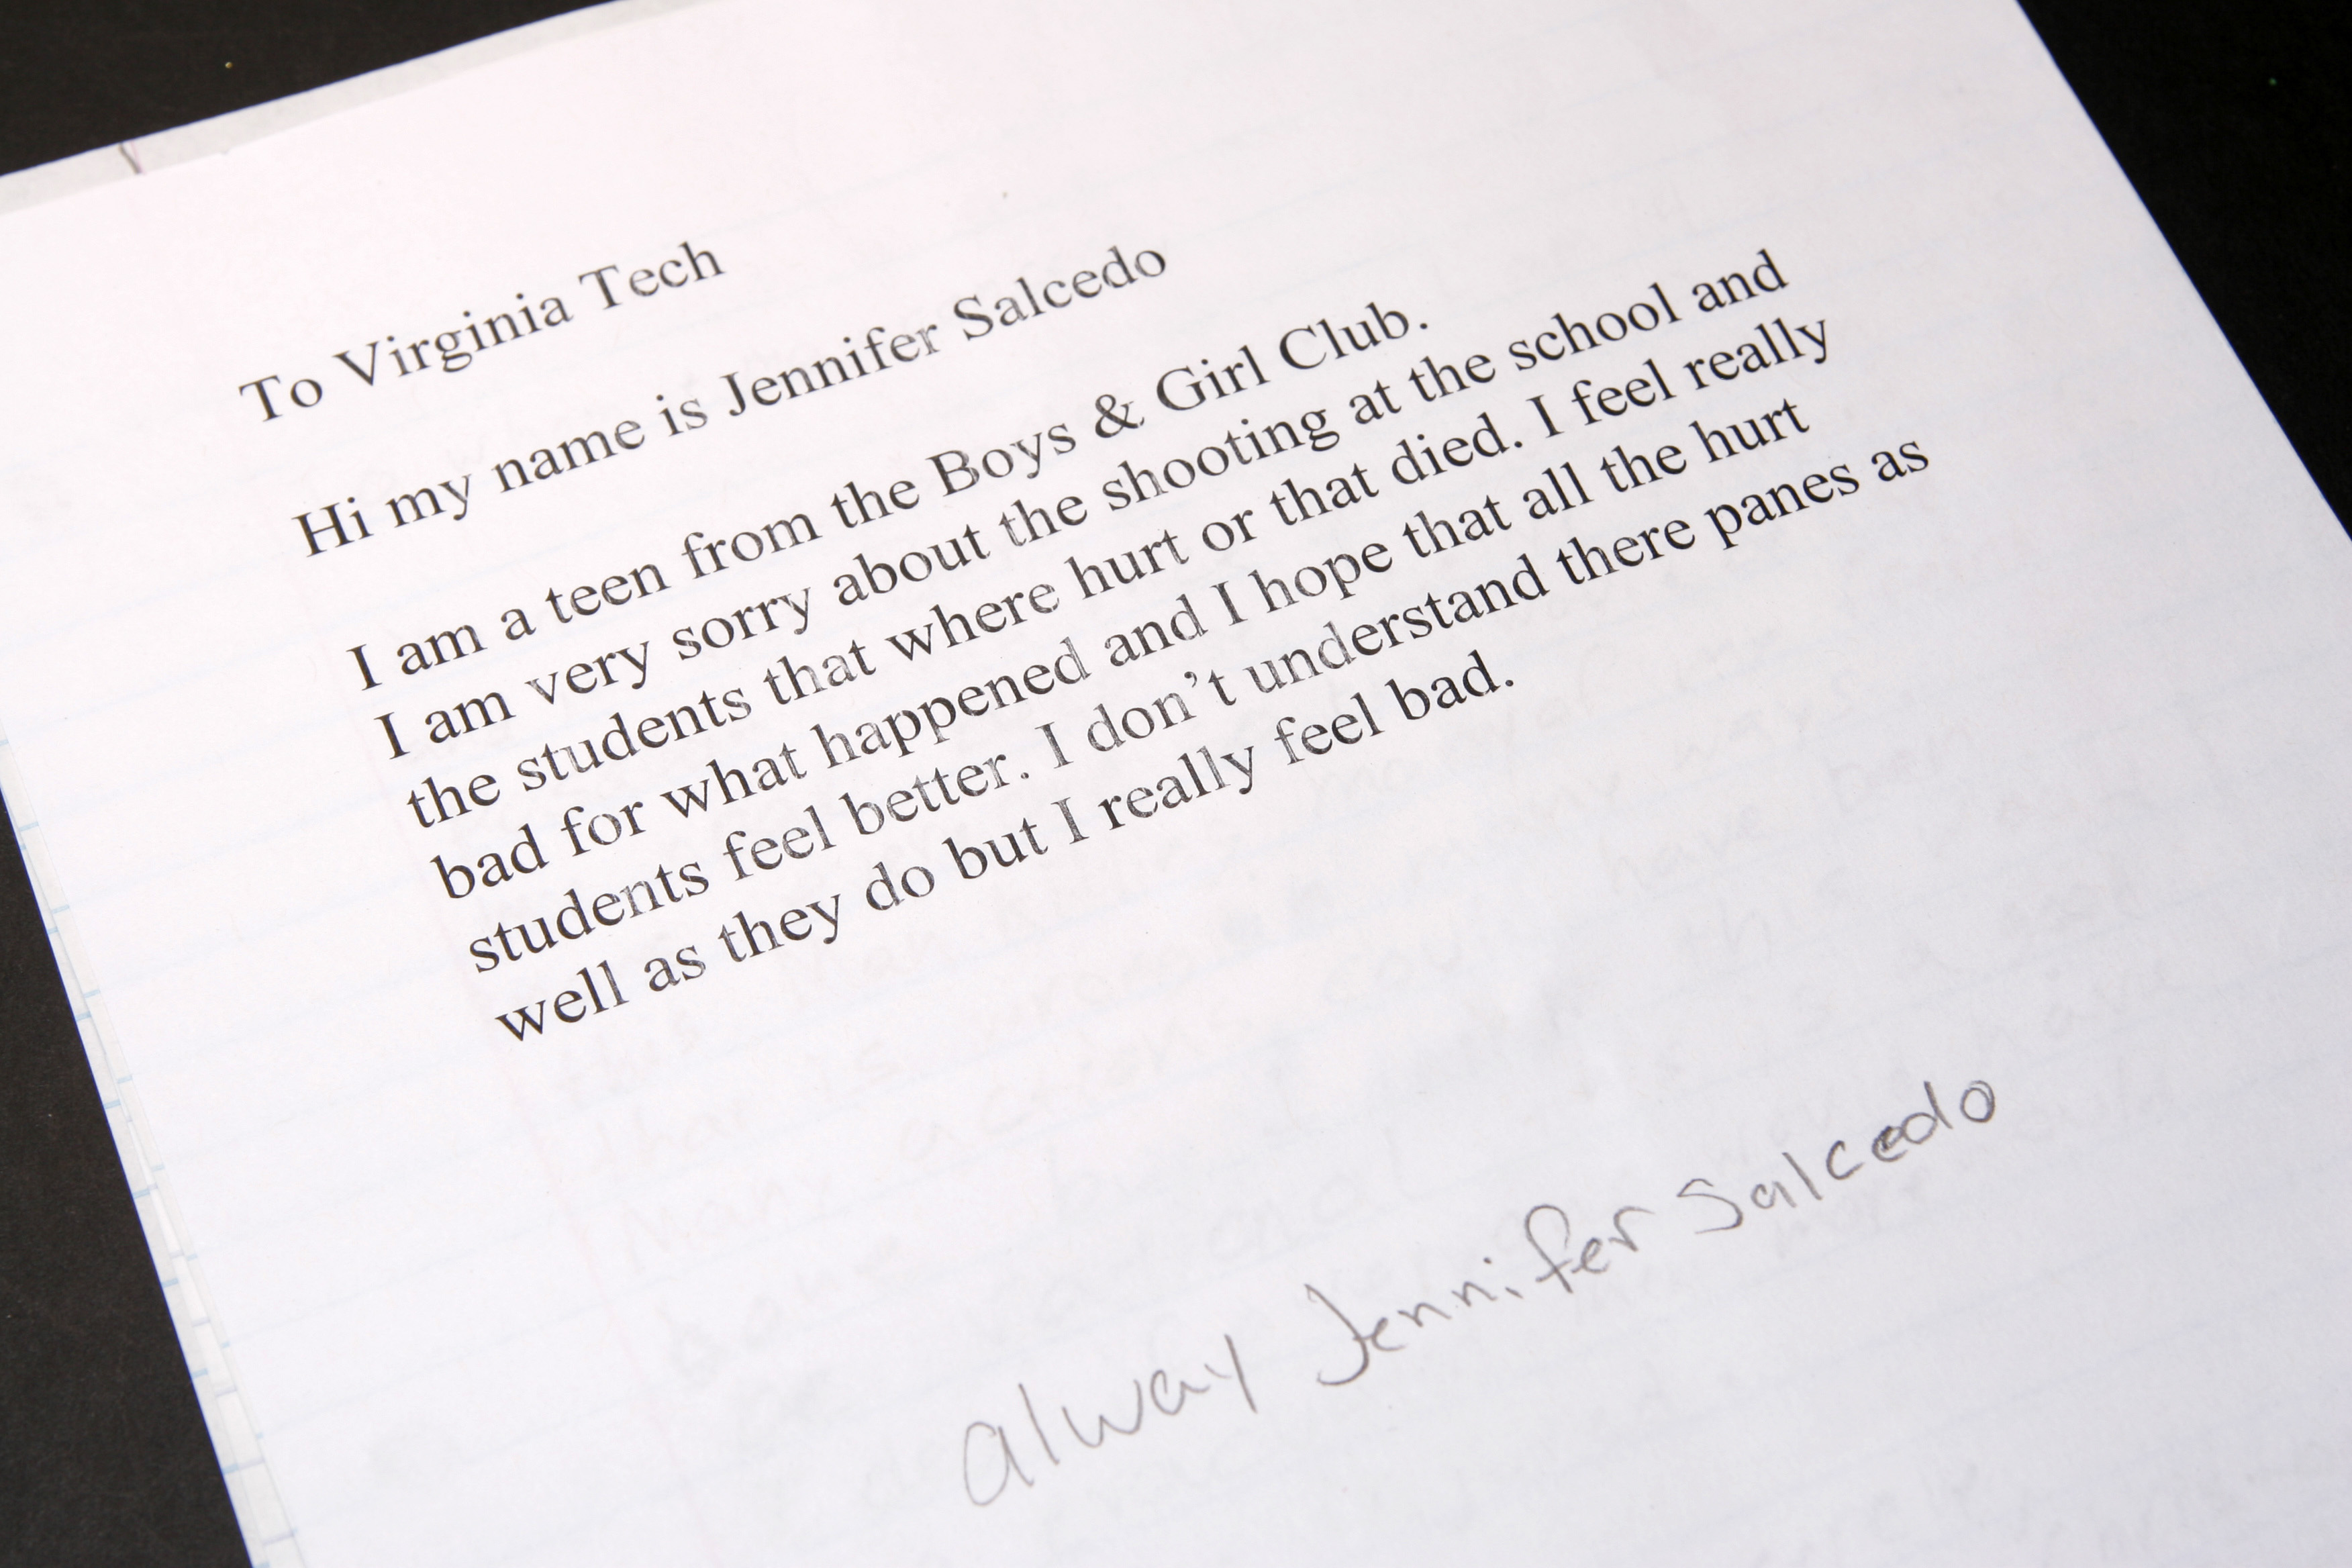 To Virginia Tech
Hi my name is Jennifer Salcedo
I am a teen from the Boys & Girl Club.
I am very sorry about the shooting at the school and
the students that where hurt or that died. I feel really
bad for what happened and I hope that all the hurt
students feel better. I don't understand there panes as
well as they do but I really feel bad.
alway Jennifer Salcedo